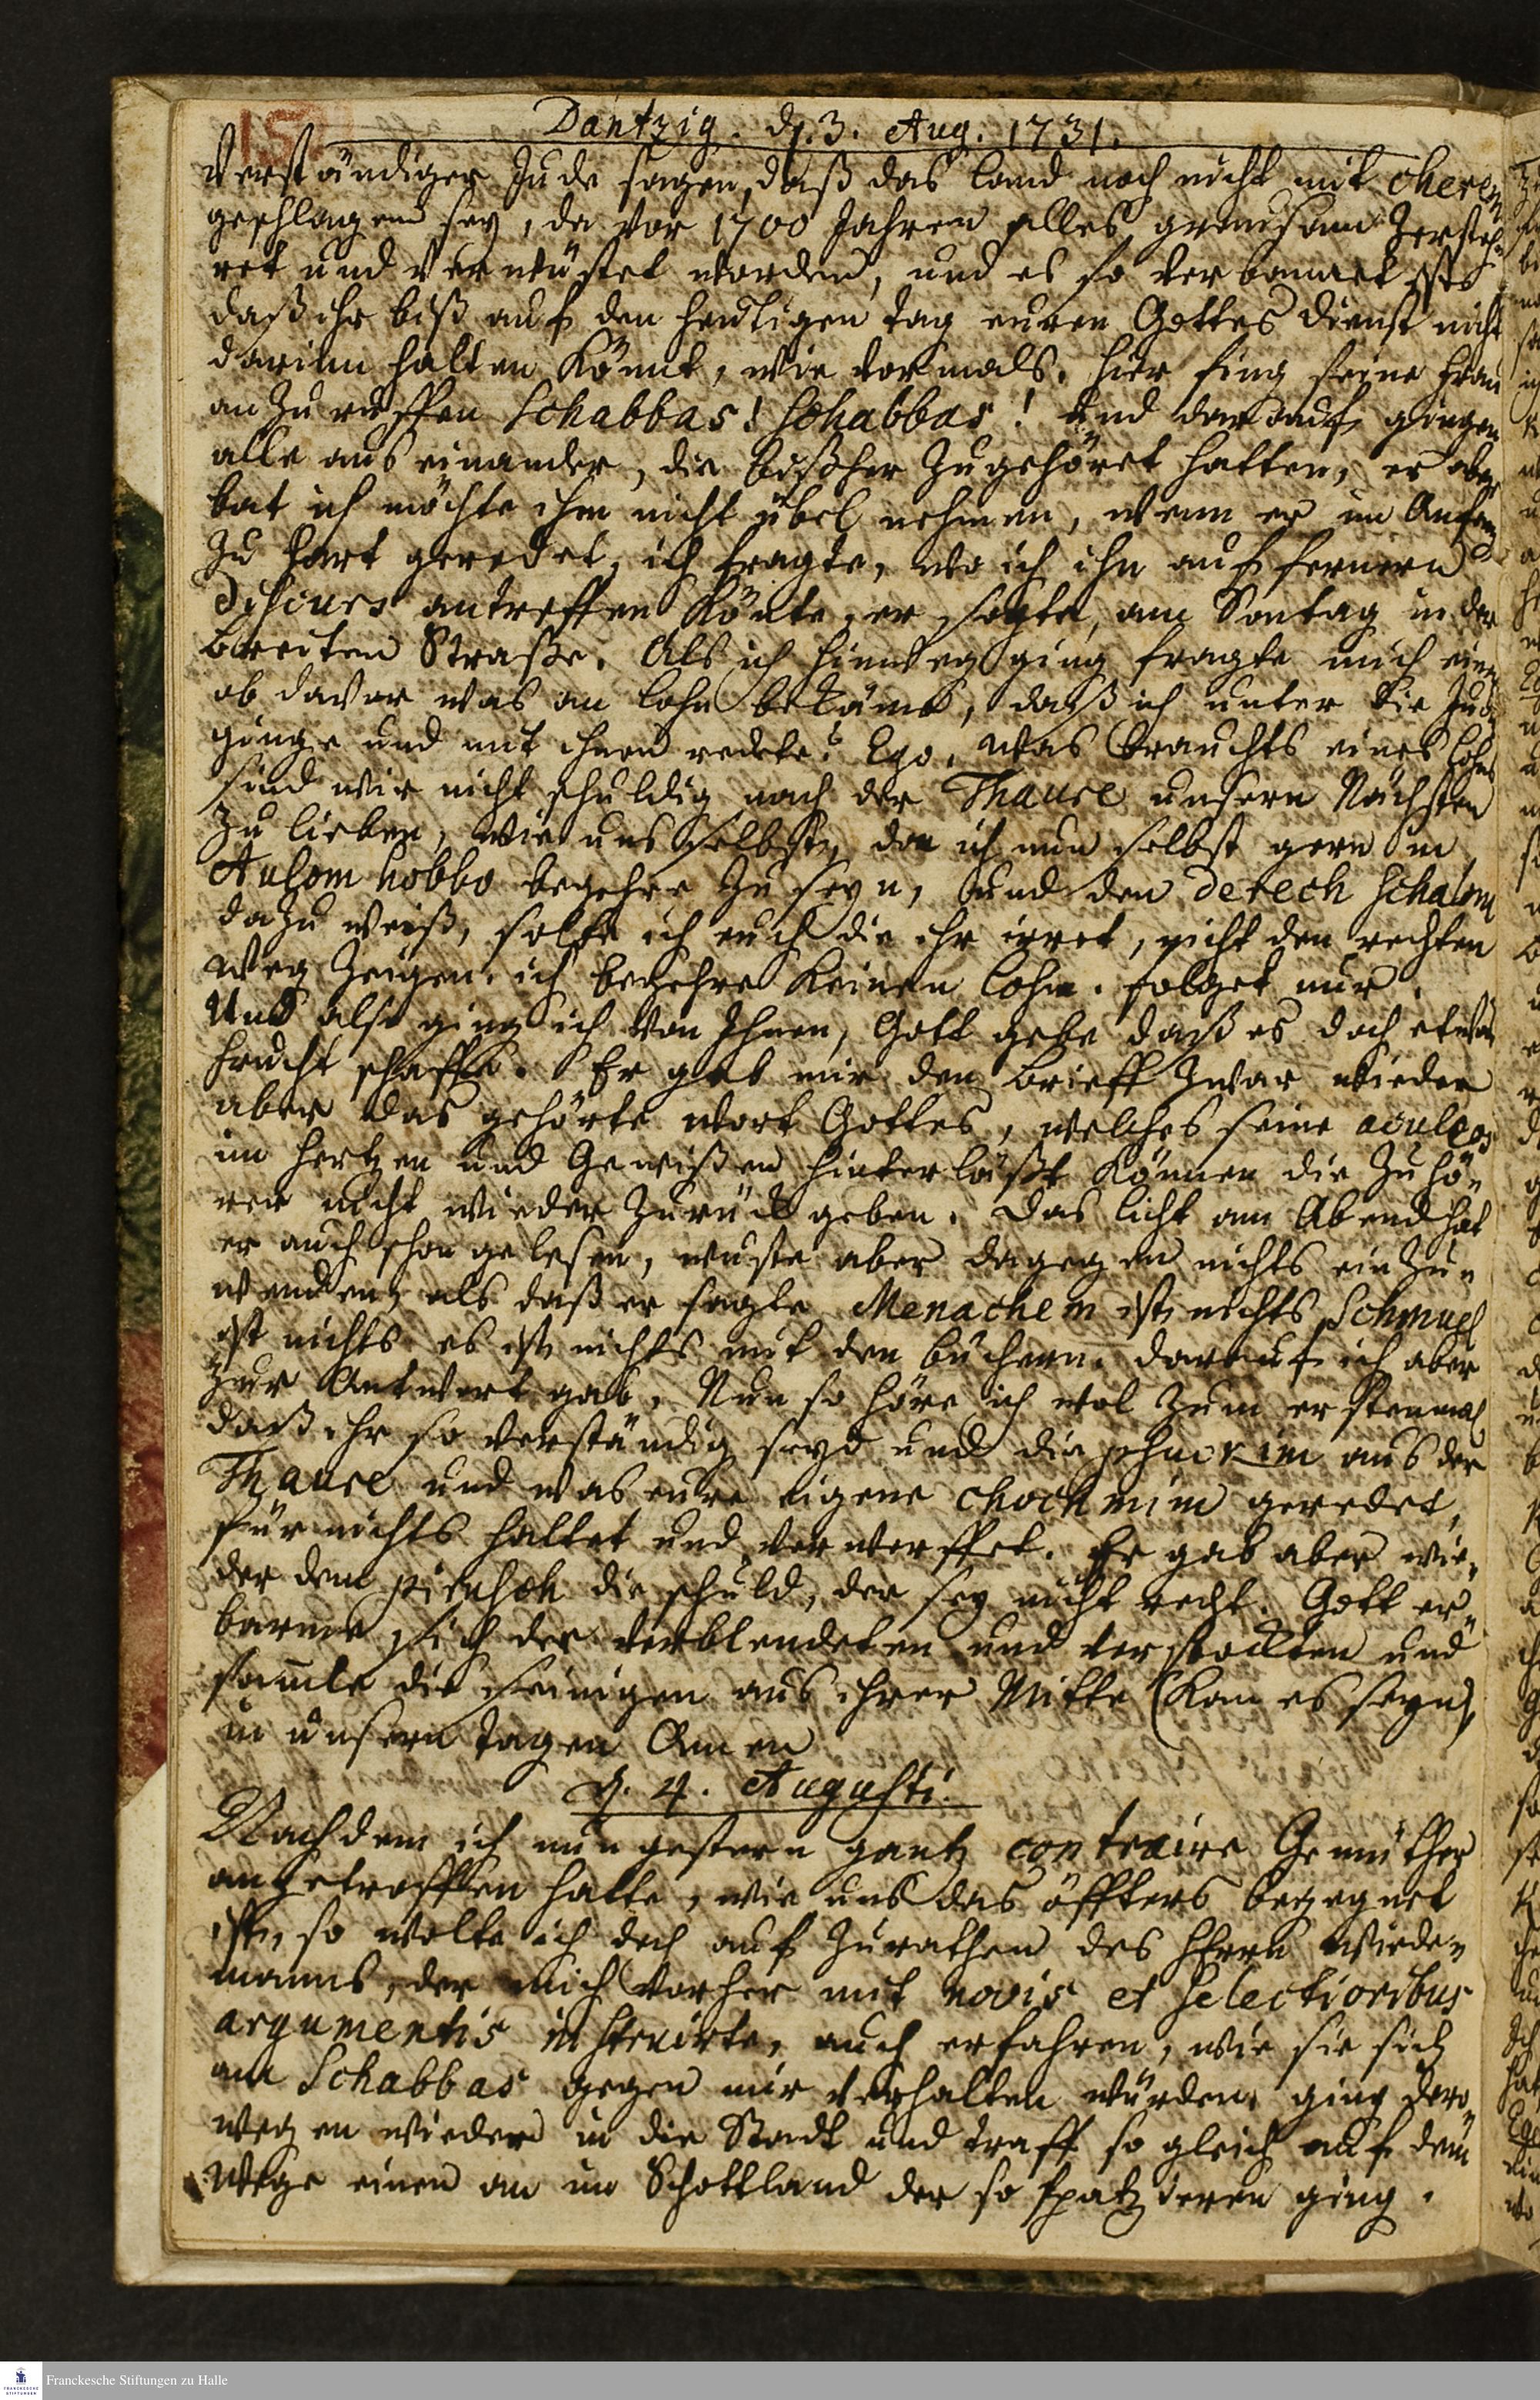 15.
Dantzig. d. 3. Aug. 1731.
Verständiger Jude sagen, daß das land noch nicht mit cherem
geschlagen sey, da vor 1700 Jahren alles grausam Zersteh-
ret und verwüstet worden, und es so verbannet ist
daß ihr biß auf den heutigen tag euren Gottes dienst nicht
darinn halten könnt, wie vormals. hier fing seine frau
an zu ruffen Schabbas! Schabbas! und darauf gingen
alle aus einander, die bißher zugehöret hatten, er aber
bat ich möchte ihm nicht übel nehmen, wenn er im Anfang
zu hart geredet, ich fragte, wo ich ihn auf fernern
discurs antreffen könte, er sagte, am Sontag in der
breiten Straße. Als ich hinweg ging fragte mich einer
ob davor was an lohn bekäme, daß ich unter die Juden
ginge und mit ihnen redete? Ego. was brauchts eines lohns
sind wir nicht schuldig nach der Thaure unsern Nächsten
zu lieben, wie uns selbst, da ich nun selbst gern im
Aulom habbo begehre zu seyn, und den derech schalom
dazu weiß, solte ich euch die ihr irret, nicht den rechten
weg zeigen. ich begehre keinen lohn. folget nur.
Und also ging ich von Ihnen, Gott gebe daß es doch etwas
frucht schaffe. Er gab mir den brieff zwar wieder
aber das gehörte wort Gottes, welches seine aculeos
im hertzen und Gewißen hinterläßt können die zuhö-
rer nicht wieder zurück geben. Das licht am Abend hat
er auch schon gelesen, wuste aber dagegen nichts einzu-
wenden, als daß er sagte Menachem ist nichts, Schmuel
ist nichts es ist nichts mit den büchern. darauf ich aber
zur Antwort gab. Nun so höre ich wol zum erstenmal
daß ihr so verständig seyd und die psuckim aus der
Thaure und was eure eigene chochmim geredet,
für nichts haltet und verwerffet. Er gab aber wie-
der dem pirusch die schuld, der sey nicht recht. Gott er-
barme sich der verblendeten und verstockten und
samle die seinigen aus ihrer Mitte (kan es seyn)
in unsern tagen Amen
d. 4. Augusti.
Nachdem ich nun gestern gantz contraire Gemüther
angetroffen hatte, wie uns das öffters begegnet
ist, so wolte ich doch auf zurathen des Herrn wiede-
manns, der mich vorher mit novis et selectioribus
argumentis instruirte, auch erfahren, wie sie sich
am Schabbas gegen mir verhalten würden. ging dero-
wegen wieder in die Stadt und traff so gleich auf dem
wege einen an im Schottland der so spatzieren ging.
Franckesche Stiftungen zu Halle